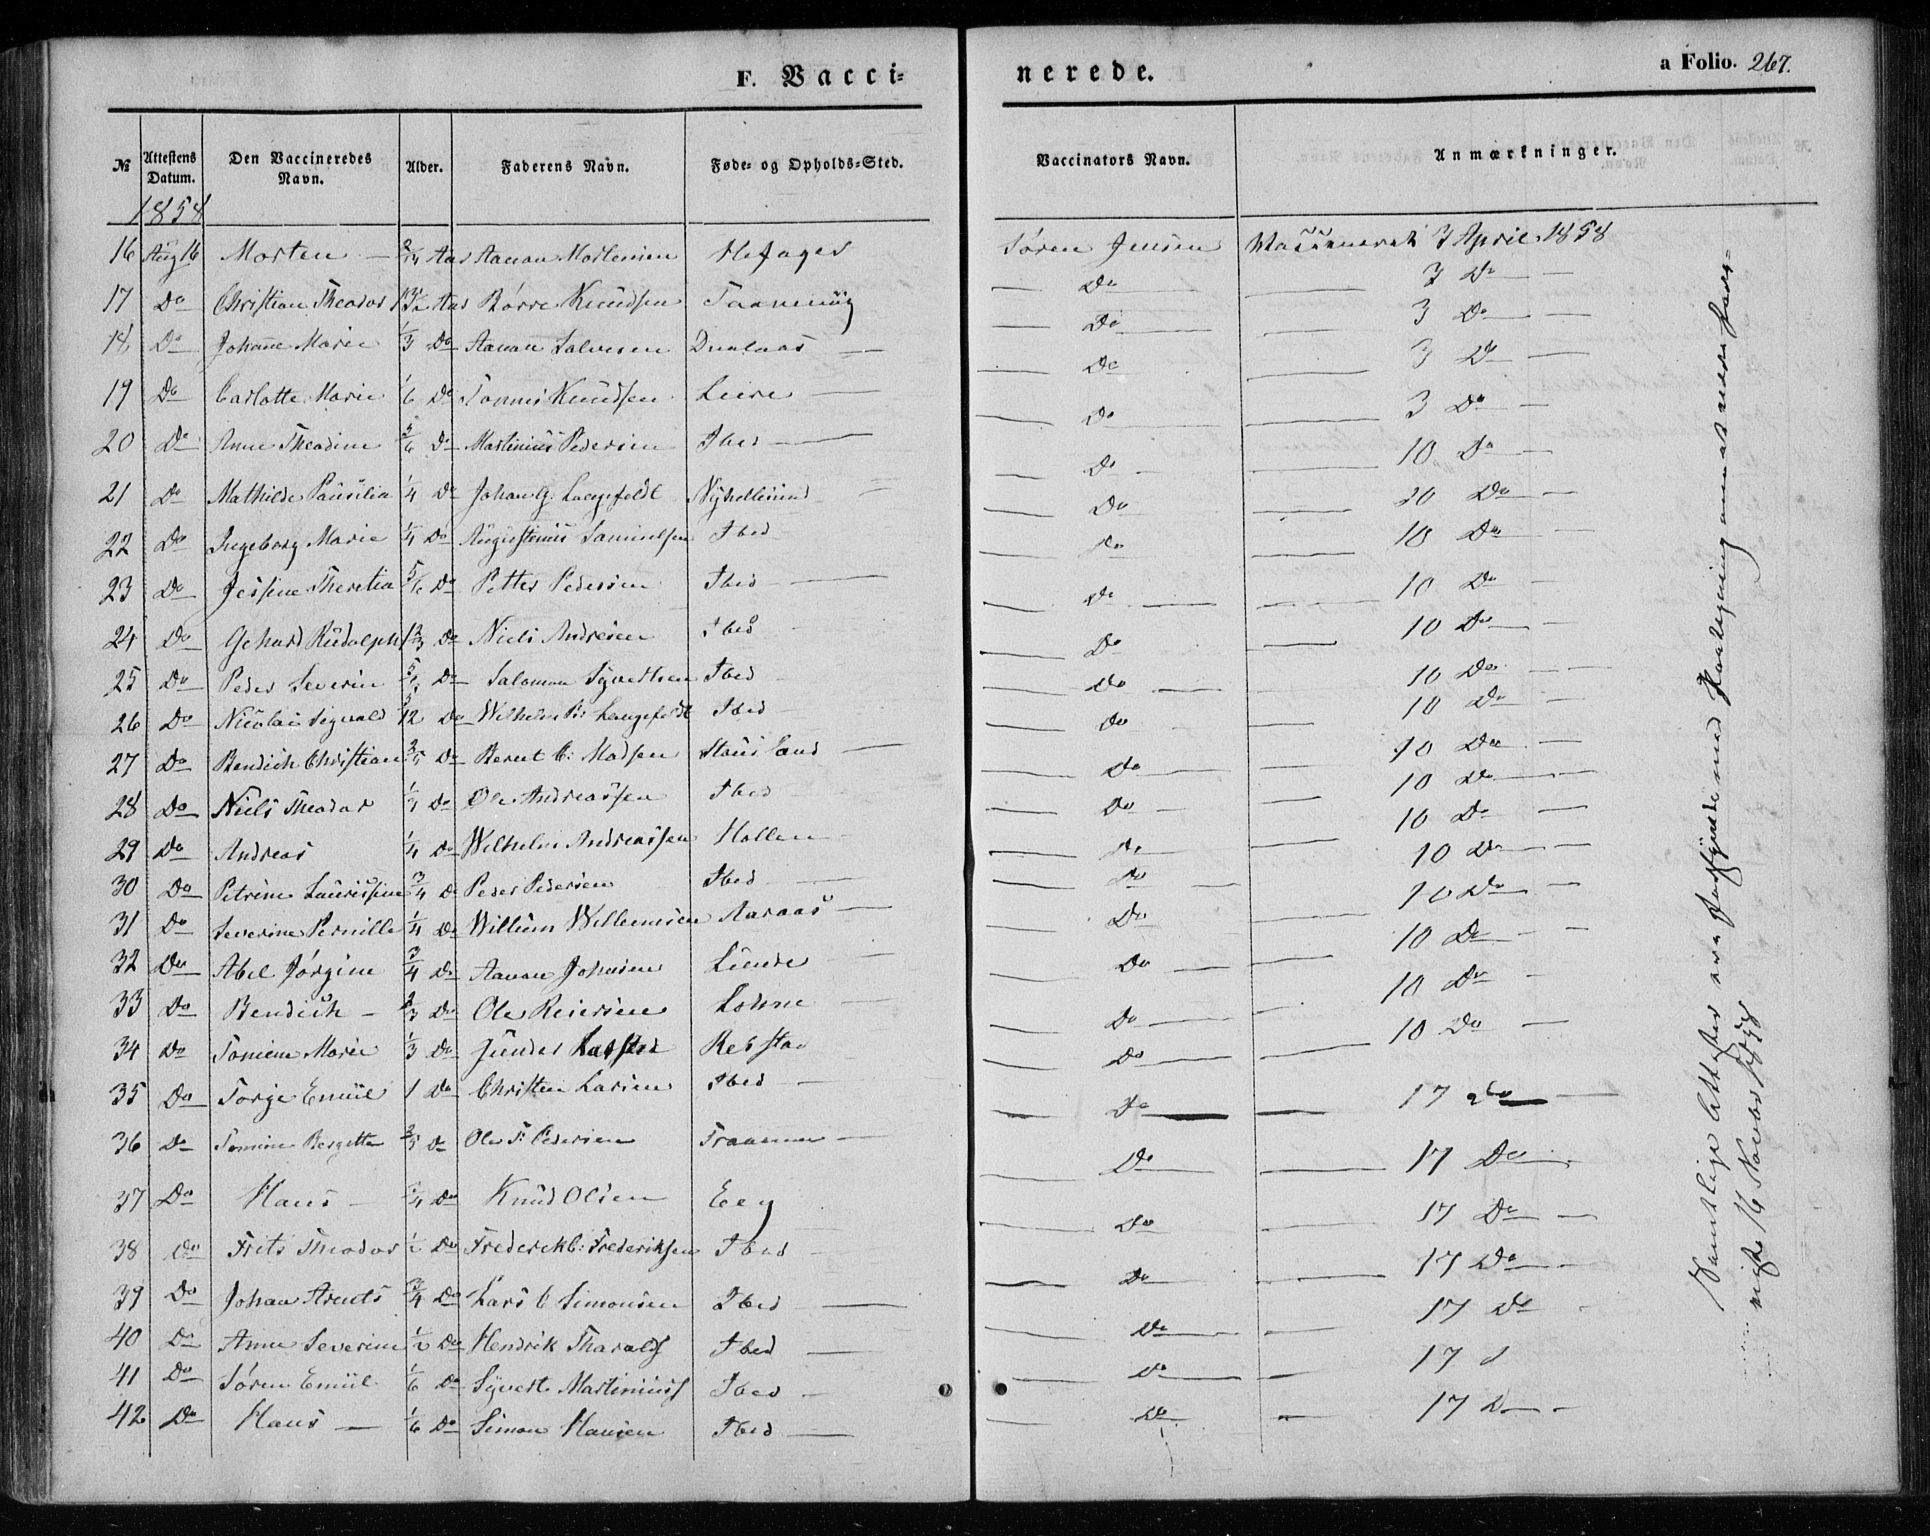 F. Vacci= nerede. a Folio. 267.
№ Attestens Datum. Den Vaccineredes Navn. Alder. Faderens Navn. Føde- og Opholds-Sted. Vaccinators Navn. Anmærkninger.
1858
16 Aug 16 Morten — Aar Aanon Mortensen Søren Jensen 3 April 1858
17 Do Christian Theodor Aar Børre Knudsen Do 3 Do
18 Do Johanne Marie 1/3 Do Aanon Salvesen Do 3 Do
19 Do Carlotte Marie 1/6 Do Tønnes Knudsen Leire Do 3 Do
20 Do Anne Theodine 5/6 Do Martinius Pedersen Ibed Do 3 Do
21 Do Mathilde 1/4 Do Johan G. Langfeldt Nyhellesund Do 10 Do
22 Do Ingeborg Marie 1/4 Do Augustinus Samuelsen Ibed Do 10 Do
23 Do Jessine 5/6 Do Petter Pedersen Ibed Do 10 Do
24 Do Gehard Rudolph 1 2/3 Do Niels Andresen Ibed Do 10 Do
25 Do Peder Severin Do Salomon Syvertsen Ibed Do 10 Do
26 Do Nicolai Sigvald Do Wilhelm Langfeldt Ibed Do 10 Do
27 Do Bendich Christian Do Bernt C: Madsen Do 10 Do
28 Do Niels Theodor Do Ole Andreassen Ibed Do 10 Do
29 Do Andreas 1/4 Do Wilhelm Andreassen Hollen Do 10 Do
30 Do Petrine 3/4 Do Peder Pedersen Ibed Do 10 Do
31 Do Severine Pernille 1/4 Do Willum Willumsen Aaraas Do 10 Do
32 Do Abel Jørgine 3/4 Do Aanon Johnsen Lunde Do 10 Do
33 Do Bendich — 2/3 Do Ole Reiersen Lohne Do 10 Do
34 Do Tomine Marie 1/3 Do Gunder Rebstad Do 10 Do
35 Do Torge Emiil 1 Do Christen Larsen Ibed Do 17 Do
36 Do Tomine Bergitte Do Ole T: Pedersen Do 17 Do
37 Do Hans — Do Knud Olsen Eeg Do 17 Do
38 Do Frits Theodor 1/2 Do Frederik C: Frederiksen Ibed Do 17 Do
39 Do Johan Arents 3/4 Do Lars C Simonsen Ibed Do 17 Do
40 Do Anne Severine 1/2 Do Hendrik Tharalds Ibed Do 17 Do
41 Do Søren Emiil 1/6 Do Syvert Martinius Ibed Do 17 d
42 Do Hans — 1/6 Do Simon Hansen Ibed Do 17 D
Samtlige Attester ere
16 1858